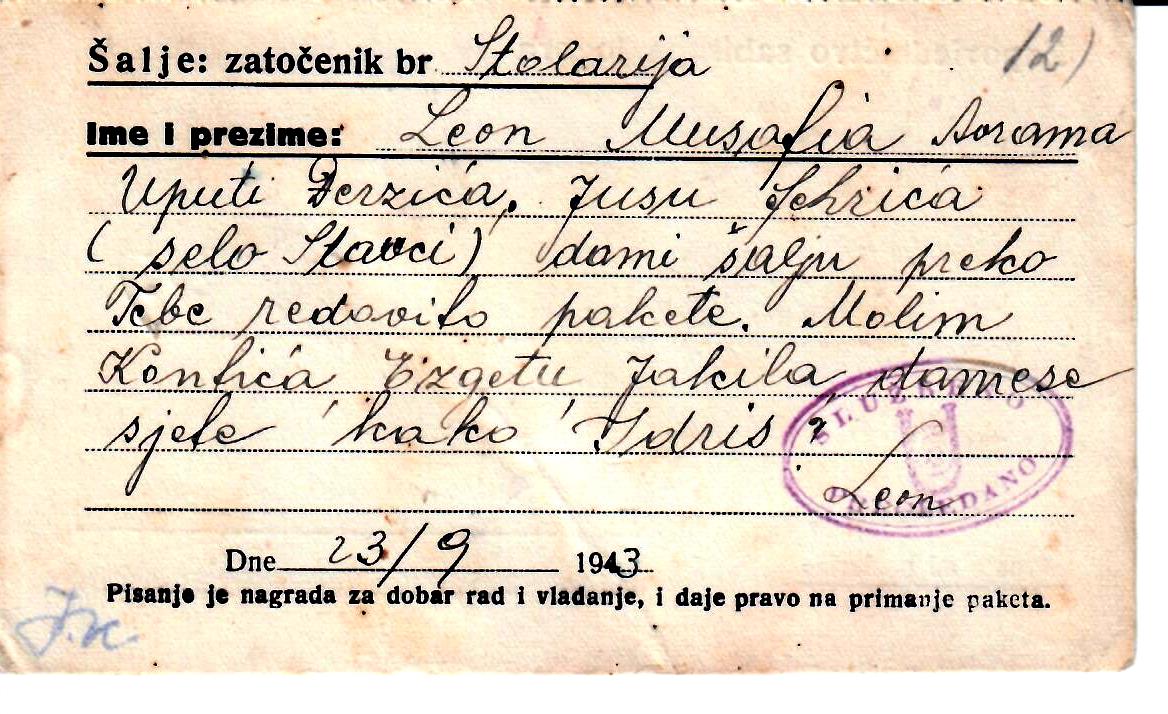 12)
Šalje: zatočenik br Stolarija
Ime i prezime: Leon Musafia Avrama
Uputi Derzića, Jusu Sehrića
(selo Stavci) dami šalju preko
Tebe redovito pakete. Molim
Konfića Izgetu Jakila damese
sjete kako Idris?
Leon
SLUŽBENO
PREGLEDANO
U
Dne 23/9 1943
Pisanje je nagrada za dobar rad i vladanje, i daje pravo na primanje paketa.